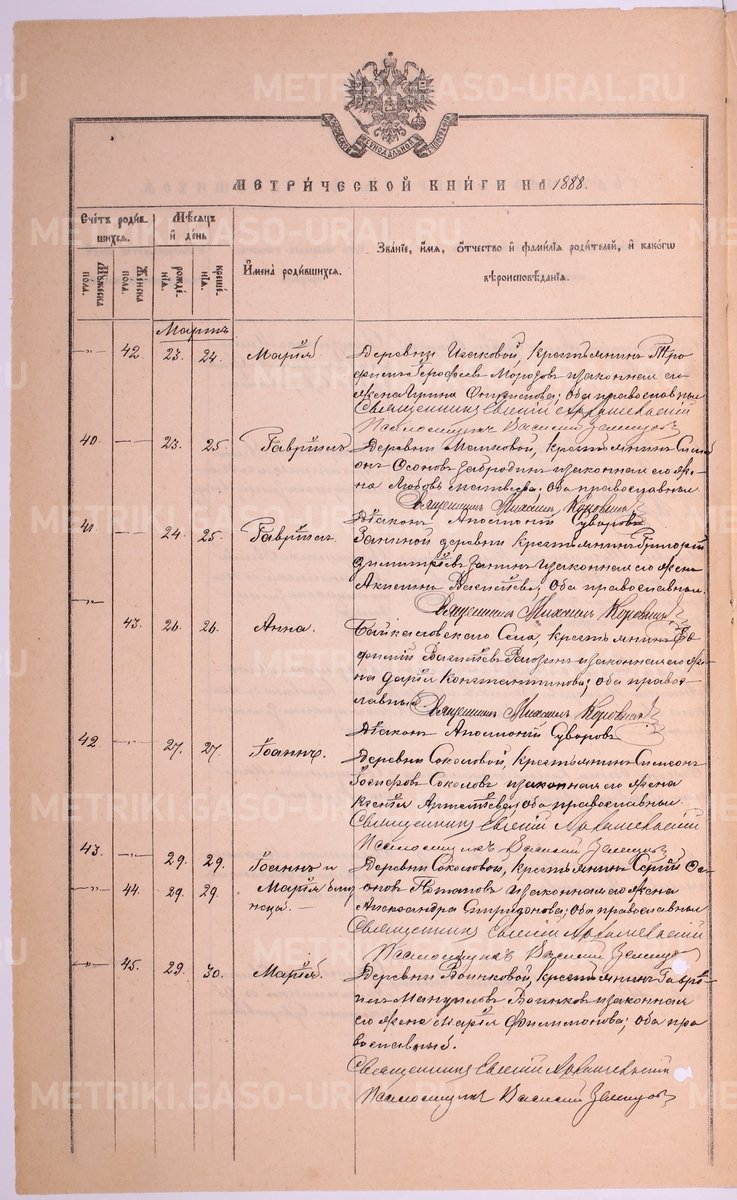 МЕТРИ́ЧЕСКОЙ КНИ́ГИ НА 1888.
Сче́тъ роди́в-
шихся.
Му́жеска
пола.
Же́нска
пола.
Мѣсяцъ
и де́нь
рожде́-
нїя.
креще́-
нїя.
И҆мена̀ роди́вшихся.
Зва́нїе, и҆́мя, ѻ҆́тчество и҆ фами́лїя роди́телей, и҆ како́гѡ
вѣроисповѣ́данїя.
Мартъ
42. 23. 24. Марія Деревни Исаковой, крестьянинъ Тро
фимъ Ерофеевъ Морозовъ и законная его
жена Ирина; оба православныи
Священникъ Евгеній Архангельскій
Псаломщикъ Василій
40. 23. 25. Гавріилъ Деревни крестьянинъ Симе
онъ и законная его же-
на Любовь Матвѣева; оба православныи
Священникъ Михаилъ Коровинъ
Діаконъ Аполлоній Суворовъ
41. 24. 25. Гавріилъ Заниной деревни крестьянинъ Григорій
Димитріевъ Занинъ и законная его жена
Василіева; оба православныи.
Священникъ Михаилъ Коровинъ
43. 26. 26. Анна. Байкаловскаго Села, крестьянинъ Ев
фимій Василіевъ и законная его же-
на Дарія Константинова; оба право-
славныи
Священникъ Михаилъ Коровинъ
Діаконъ Аполлоній Суворовъ
42. 27. 27. Іоаннъ. Деревни Соколовой, крестьянинъ Симеонъ
Іосифовъ Соколовъ и законная его жена
Ксенія; оба православныи.
Священникъ Евгеній Архангельскій
Псаломщикъ Василій
43. 29. 29. Іоаннъ и Деревни Соколовой, крестьянинъ Сергій
44. 29. 29. Марія близ Потаповъ и законная его жена
неца. Александра Спиридонова; оба православныи
Священникъ Евгеній Архангельскій
Псаломщикъ Василій
45. 29. 30. Марія. Деревни Воинковой, крестьянинъ Гаврі
илъ Мануиловъ Воинковъ и законная
его жена Марія Филимонова; оба пра
вославныи.
Священникъ Евгеній Архангельскій
Псаломщикъ Василій
METRIKI.GASO-URAL.RU